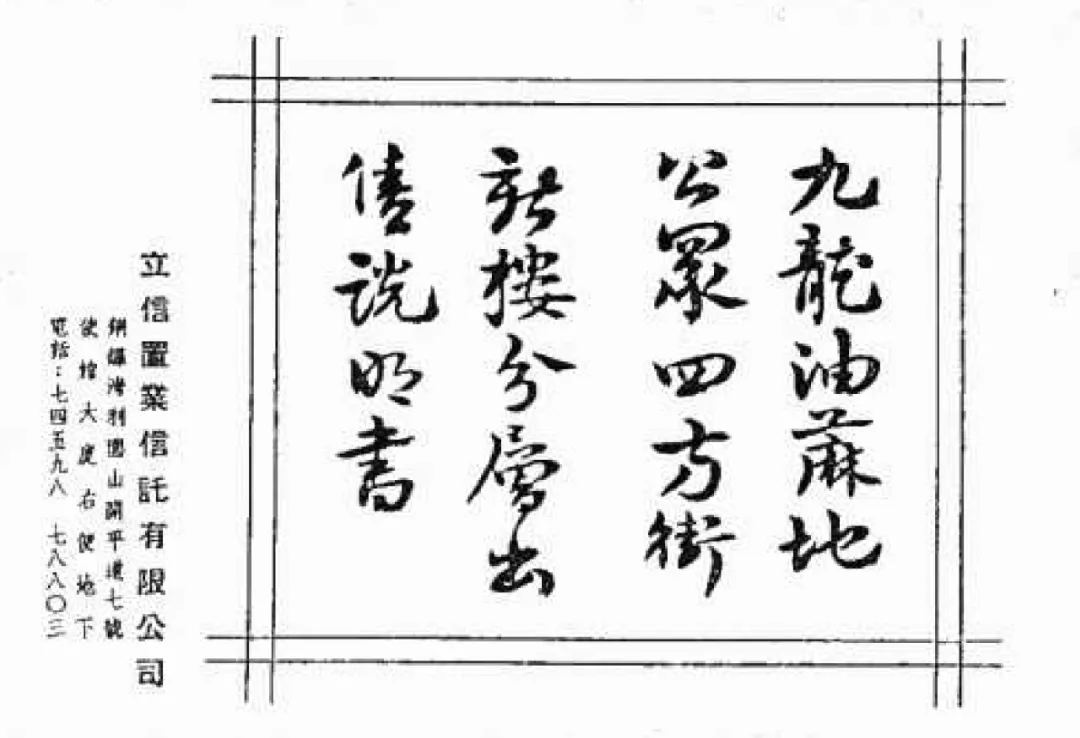 九龍油蔴地
公眾四方街
新樓分層出
售說明書
立信置業信託有限公司
銅鑼灣利園山開平道七號
大廈右便地下
電話：七四五九八 七八八〇三